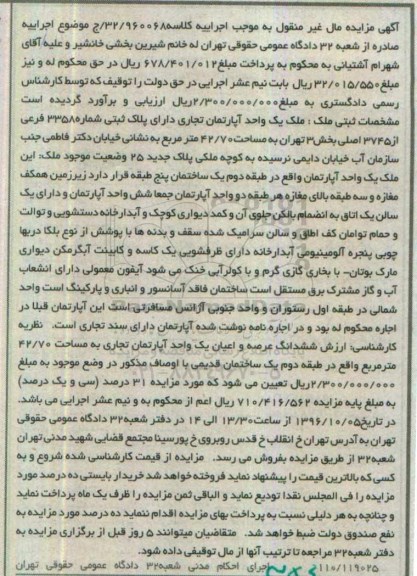 آگهی مزایده مال غیر منقول به موجب اجراییه کلاسه۳۲/۹۶۰۰۶۸/ج موضوع اجراییه
صادره از شعبه ۳۲ دادگاه عمومی حقوقی تهران له خانم شیرین بخشی خانشیر و علیه آقای
شهرام آشتیانی به محکوم به پرداخت مبلغ۶۷۸/۴۰۱/۰۱۲ ریال در حق محکوم له و نیز
مبلغ۳۲/۰۱۵/۵۵۰ ریال بابت نیم عشر اجرایی در حق دولت را توقیف که توسط کارشناس
رسمی دادگستری به مبلغ۲/۳۰۰/۰۰۰/۰۰۰ریال ارزیابی و برآورد گردیده است
مشخصات ثبتی ملک : ملک یک واحد آپارتمان تجاری دارای پلاک ثبتی شماره۳۳۵۸ فرعی
از۳۷۴۵ اصلی بخش۳ تهران به مساحت۴۲/۷۰ متر مربع به نشانی خیابان دکتر فاطمی جنب
سازمان آب خیابان دایمی نرسیده به کوچه ملکی پلاک جدید ۲۵ وضعیت موجود ملک: این
ملک یک واحد آپارتمان واقع در طبقه دوم یک ساختمان پنج طبقه قرار دارد زیرزمین همکف
مغازه و سه طبقه بالای مغازه هر طبقه دو واحد آپارتمان جمعا شش واحد آپارتمان و دارای یک
سالن یک اتاق به انضمام بالکن جلوی آن و کمد دیواری کوچک و آبدارخانه دستشویی و توالت
و حمام توامان کف اطاق و سالن سرامیک شده سقف و بدنه ها با پوشش از نوع بلکا دربها
چوبی پنجره آلومینیومی آبدارخانه دارای ظرفشویی یک کاسه و کابینت آبگرمکن دیواری
مارک بوتان- با بخاری گازی گرم و با کولرآبی خنک می شود آیفون معمولی دارای انشعاب
آب و گاز مشترک برق مستقل است ساختمان فاقد آسانسور و انباری و پارکینگ است واحد
شمالی در طبقه اول رستوران و واحد جنوبی آژانس مسافرتی است این آپارتمان قبلا در
اجاره محکوم له بود و در اجاره نامه نوشته شده آپارتمان دارای سند تجاری است. نظریه
کارشناسی: ارزش ششدانگ عرصه و اعیان یک واحد آپارتمان تجاری به مساحت ۴۲/۷۰
مترمربع واقع در طبقه دوم یک ساختمان قدیمی با اوصاف مذکور در وضع موجود به مبلغ
۲/۳۰۰/۰۰۰/۰۰۰ریال تعیین می شود که مورد مزایده ۳۱ درصد (سی و یک درصد)
به مبلغ پایه مزایده ۷۱۰/۴۱۶/۵۶۲ ریال اعم از محکوم به و نیم عشر اجرایی می باشد.
در تاریخ۱۳۹۶/۱۰/۰۵ از ساعت۱۳/۳۰ الی ۱۴ در دفتر شعبه۳۲ دادگاه عمومی حقوقی
تهران به آدرس تهران خ انقلاب خ قدس روبروی خ پورسینا مجتمع قضایی شهید مدنی تهران
شعبه۳۲ از طریق مزایده بفروش می رسد. مزایده از قیمت کارشناسی شده شروع و به
کسی که بالاترین قیمت را پیشنهاد نماید فروخته خواهد شد خریدار بایستی ده درصد مورد
مزایده را فی المجلس نقدا تودیع نماید و الباقی ثمن مزایده را ظرف یک ماه پرداخت نماید
و چنانچه به هر دلیلی نسبت به پرداخت بهای مزایده اقدام ننماید ده درصد مورد مزایده به
نفع صندوق دولت ضبط خواهد شد. متقاضیان میتوانند ۵ روز قبل از برگزاری مزایده به
دفتر شعبه۳۲ مراجعه تا ترتیب آنها از مال توقیفی داده شود.
۱۱۰/۱۱۹۰۲۵ اجرای احکام مدنی شعبه۳۲ دادگاه عمومی حقوقی تهران